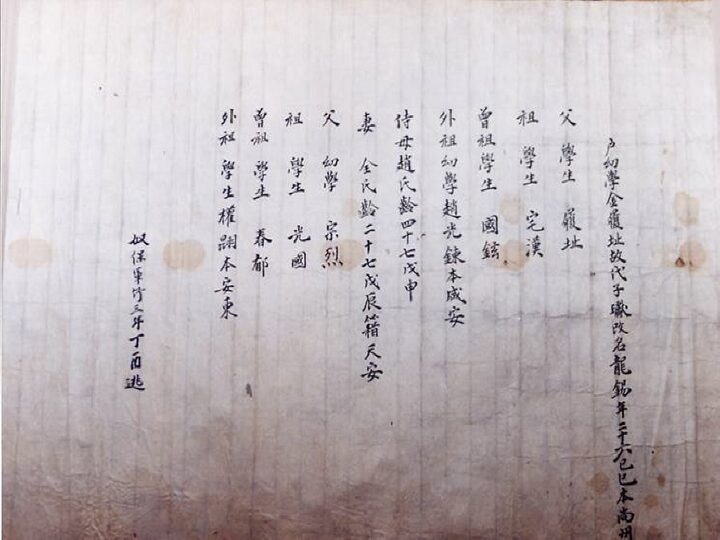 戶幼學金履址故代子改名龍錫年二十六己巳本尚州
父 學生 履址
祖 學生 宅漢
曾祖學生 國鉉
外祖幼學趙光鍊本咸安
侍母趙氏齡四十七戊申
妻 全氏齡二十七戊辰籍天安
父 幼學 宗烈
祖 學生 光國
曾祖 學生 春郁
外祖 學生權本安東
奴保軍年丁酉逃